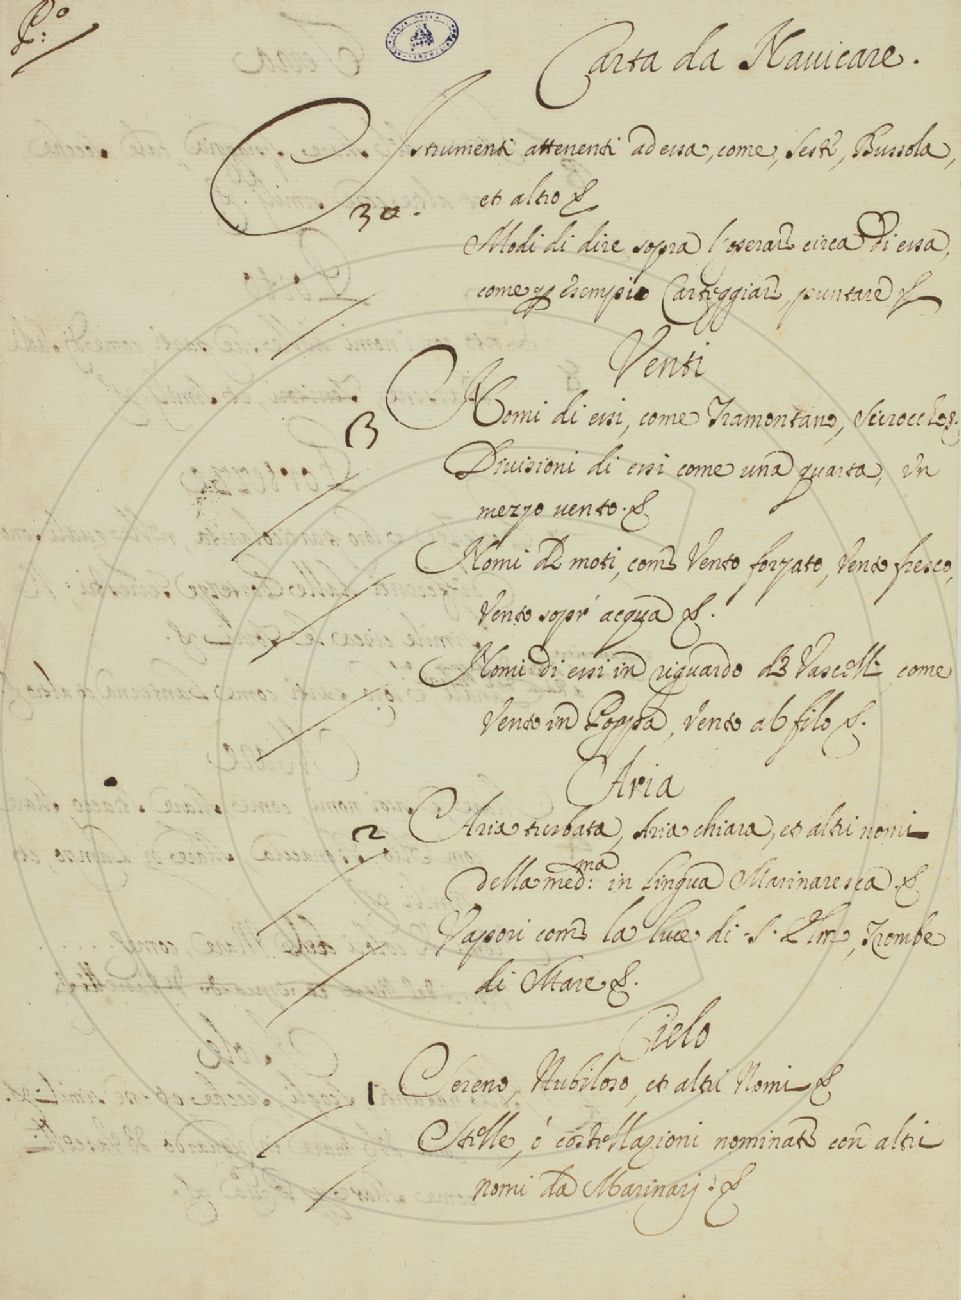 P.º
Carta da Nauicare.
Istrumenti attenenti ad essa, come, Sesti, Bussola,
30.
et altro &.
Modi di dire sopra l'operare circa di essa,
come per esempio Carteggiare, puntare &.
Venti
Nomi di essi, come Tramontano, Scirocco &.
3
Diuisioni di essi come una quarta, un
mezzo uento. &.
Nomi De moti, come Vento forzato, Vento fresco,
Vento sopr' acqua &.
Nomi di essi in riguardo de Vascelli come
Vento in Poppa, Vento al filo &.
Aria
Aria turbata, Aria chiara, et altri nomi
2
della med:ma in lingua Marinaresca &.
Vapori come la luce di S. Elmo, Trombe
di Mare &.
Cielo
Sereno, Nubiloso, et altri Nomi &.
1
Stelle, ó costellazioni nominate con altri
nomi da Marinarj: &.